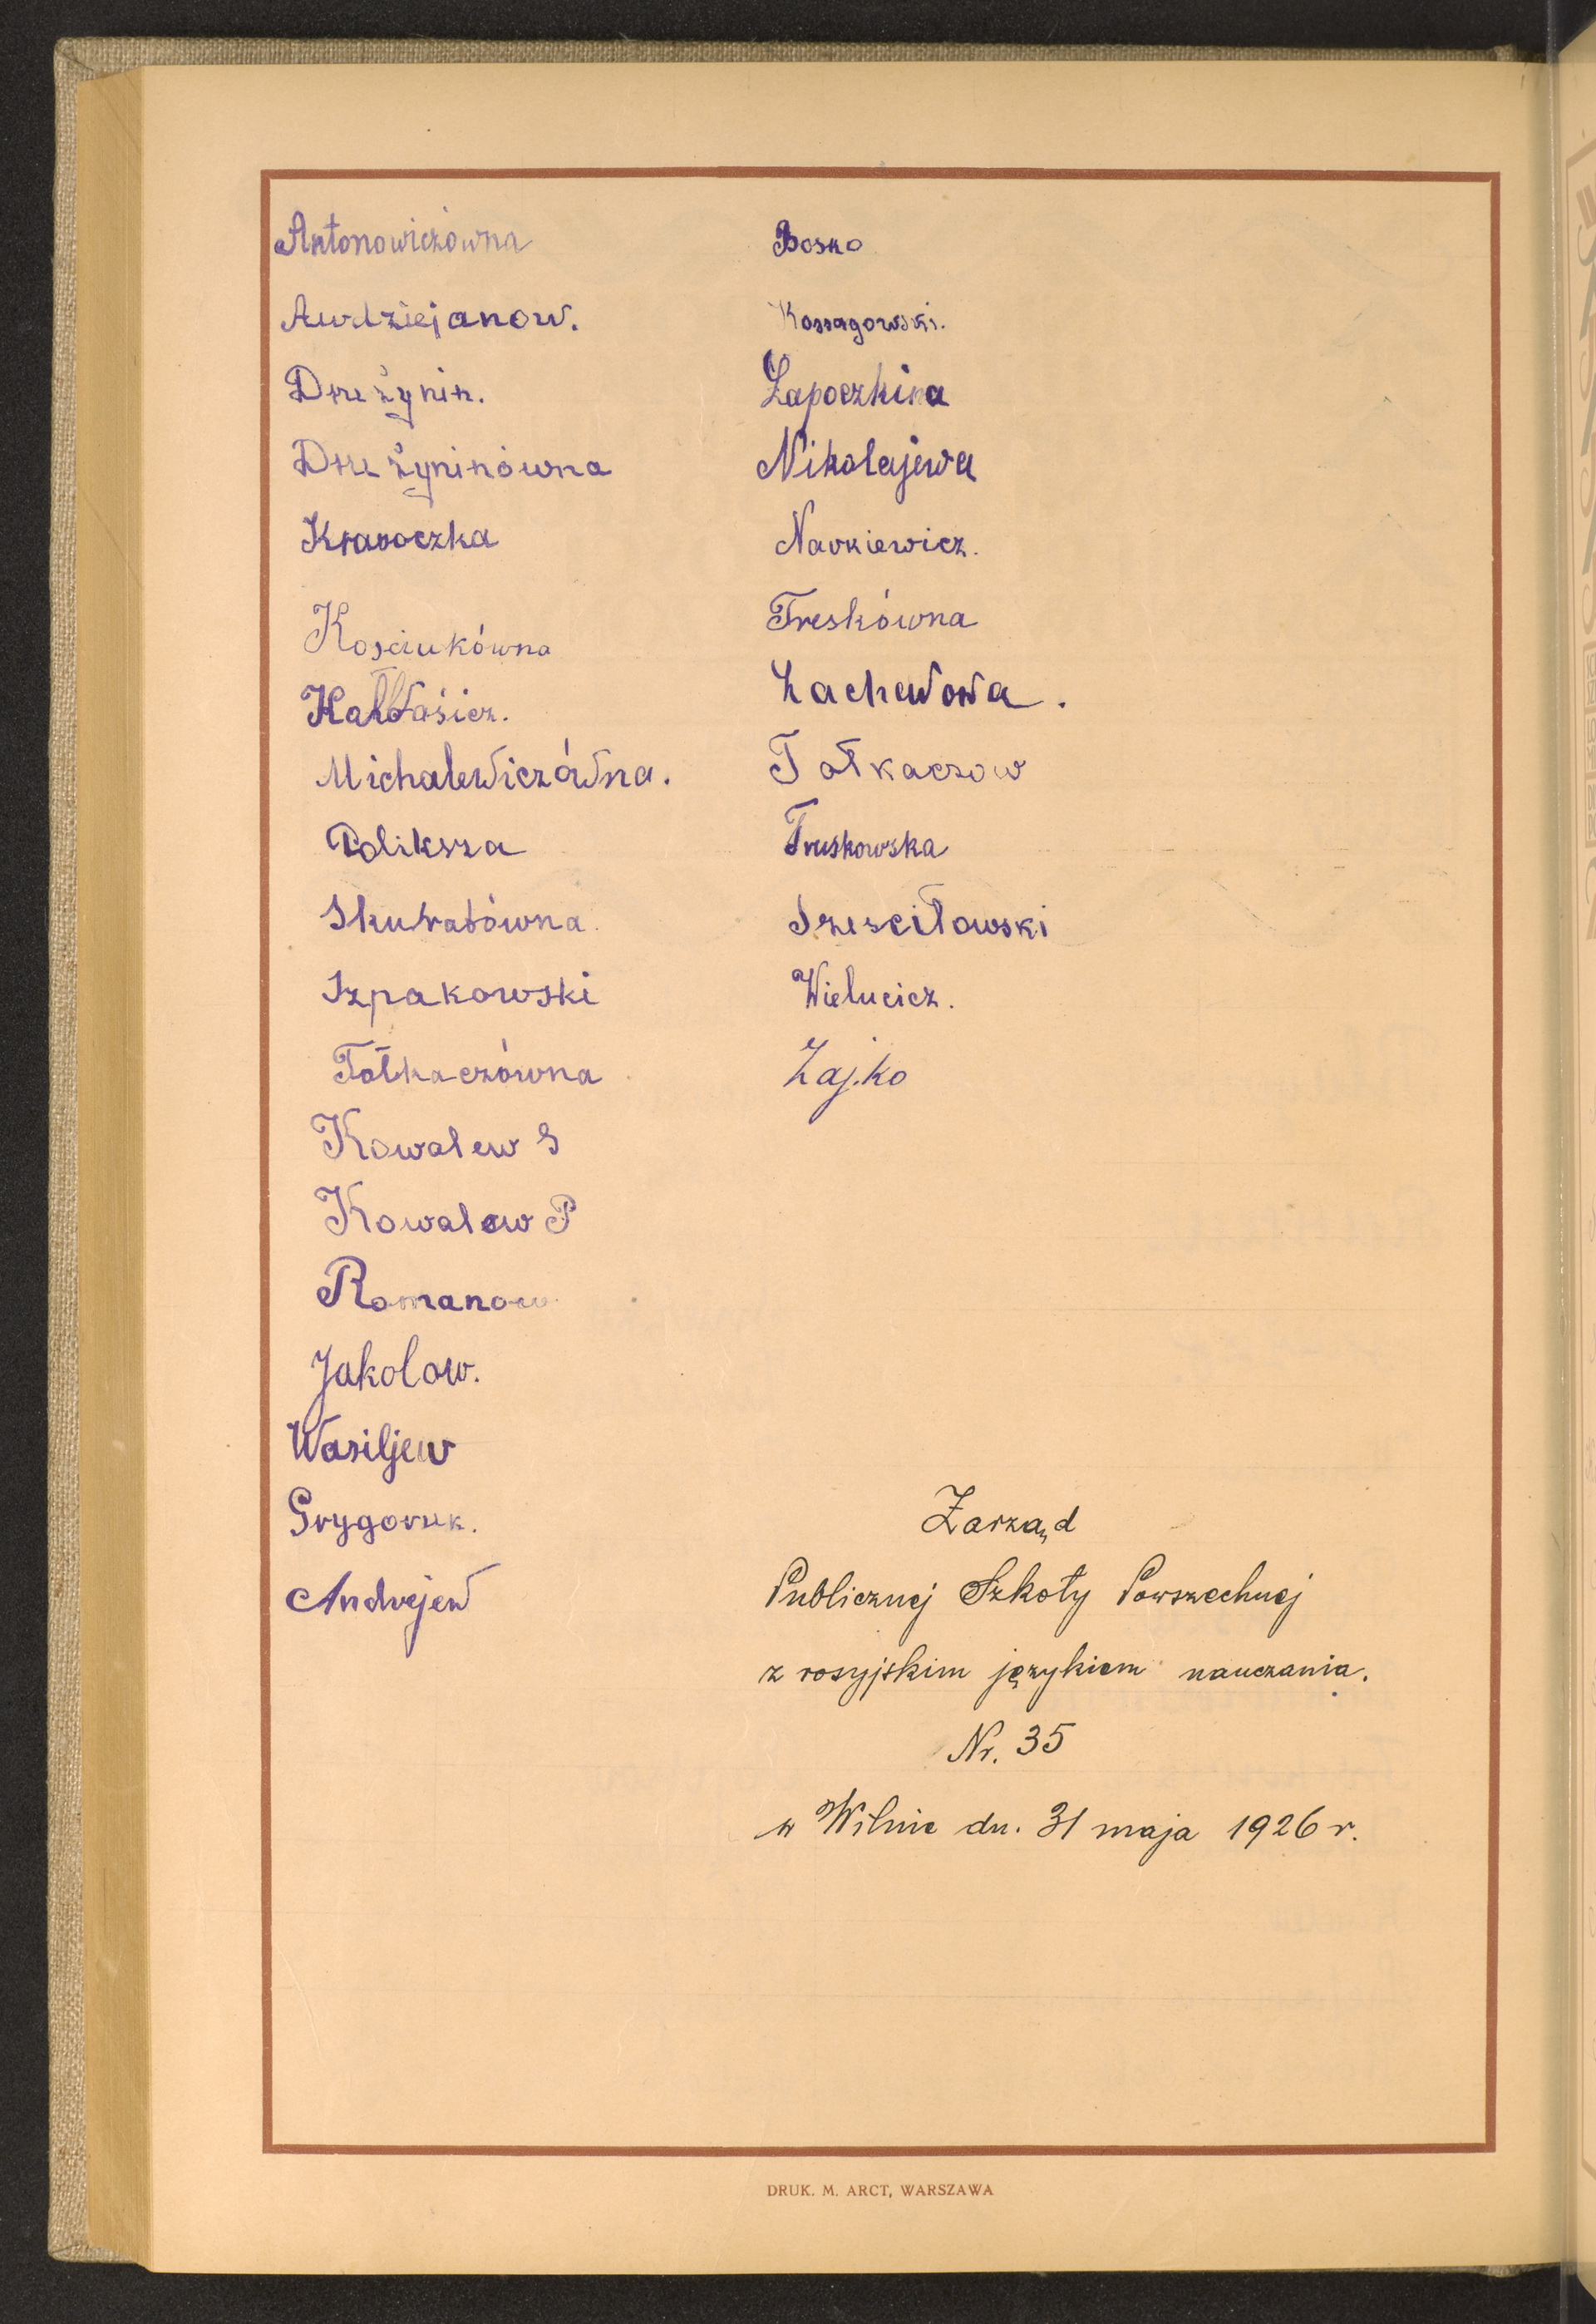 Antonowiczówna
Awdziejanow.
Drużynin.
Drużyninówna
Krawoczka
Kosciukówna
Michalewiczówna.
Poliksza
Skuratówna
Szpakowski
Tołkaczówna
Kowalew S
Kowalew P
Romanow
Jakolow.
Wasiljew
Grygoruk.
Andrejew
Bosko
Kossagowski.
Łapoczkina
Nikolajewa
Narkiewicz.
Treskówna
Lachewowa.
Tołkaczow
Truskowska
Wielucicz.
Zajko
Zarząd
Publicznej Szkoły Powszechnej
z rosyjskim językiem nauczania.
Nr. 35
w Wilnie dn. 31 maja 1926 r.
DRUK. M. ARCT, WARSZAWA